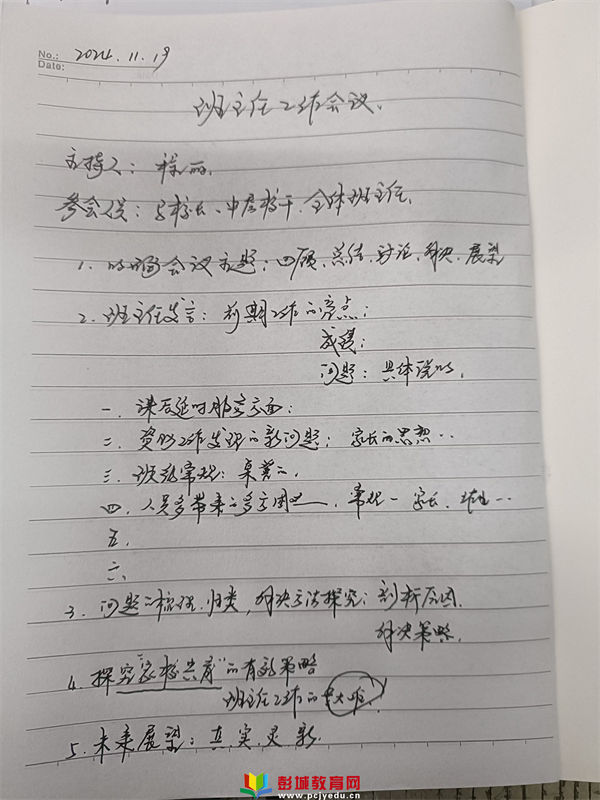 No.: 2024.11.19
Date:
班主任工作会议.
主持人:
参会人员: 校长、中层校干、全体班主任.
1. 明确会议主题: 回顾、总结、讨论、解决、展望
2. 班主任发言: 前期工作的亮点;
成绩;
问题: 具体说明.
一. 课后延时服务方面:
二. 资助工作发现的新问题; 家长的思想..
三. 班级常规: 桌凳..
四. 人员多带来的多方困.. 常规一家长、..
五.
六.
3. 问题的梳理、归类, 解决方法探究: 剖析原因.
解决策略.
4. 探究“家校共育”的有效策略
班主任工作的
5. 未来展望: 真、实、灵、新
彭城教育网
www.pcjyedu.cn